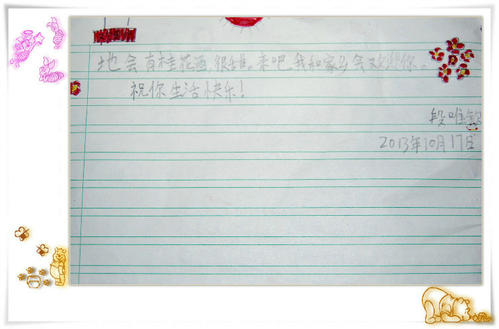 地会有桂花酒,很难,来吧,我和家乡会欢迎你。
祝你生活快乐!
段唯
2013年10月17日